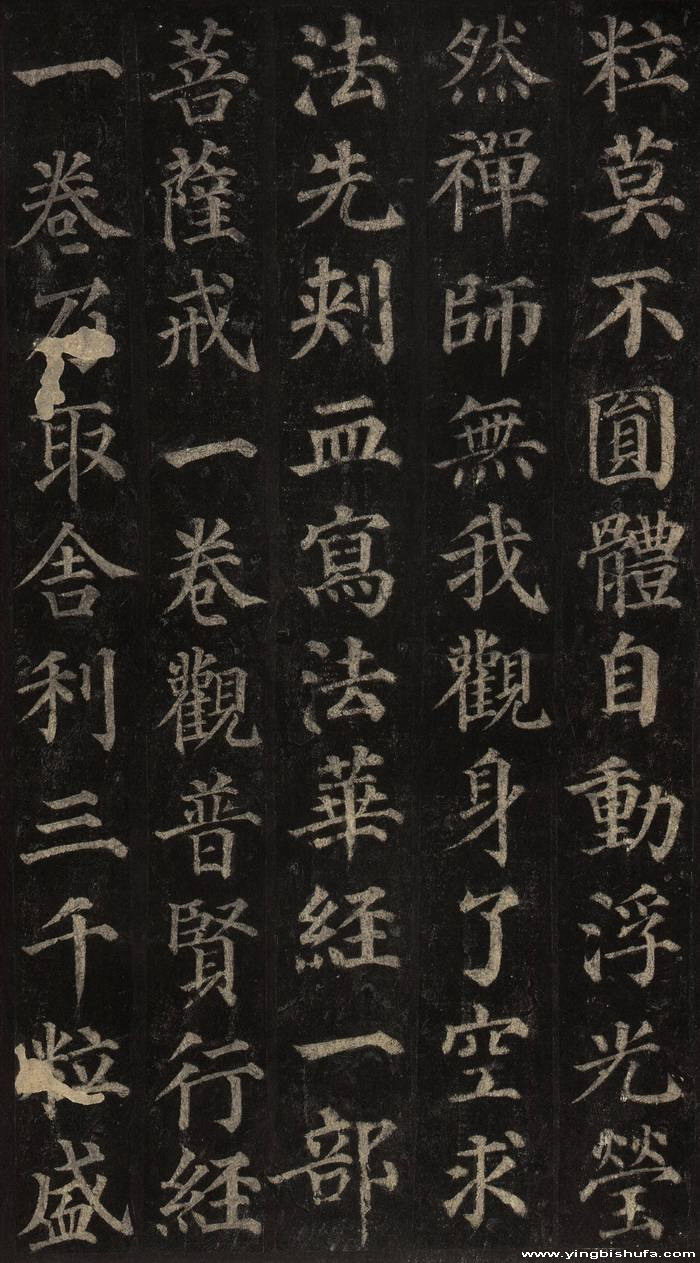 粒莫不圓體自動浮光瑩
然禪師無我觀身了空求
法先刺血寫法華経一部
菩薩戒一卷觀普賢行経
一卷乃取舍利三千粒盛
www.yingbishufa.com